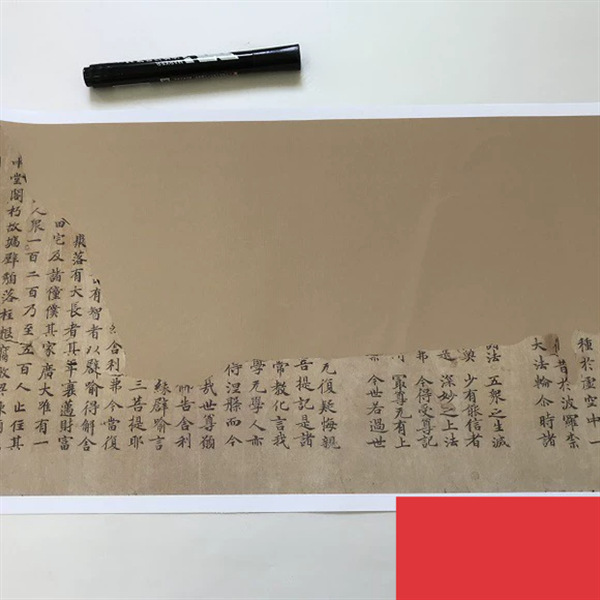 種於虛空中一
昔於波羅柰
大法輪尒時諸
法五眾之生滅
奧少有能信者
是深妙之上法
弗今得受尊記
冣尊无有上
今世若過世
无復疑悔親
菩提記是諸
常教化言我
學无學人亦
得涅槃而今
哉世尊願
佛告舍利
緣譬喻言
三菩提耶
舍利弗今當復
有智者以譬喻得解舍
聚落有大長者其年衰邁財富
田宅及諸僮僕其家廣大唯有一
人眾一百二百乃至五百人止住其
堂閣朽故牆壁頹落柱根腐敗梁棟